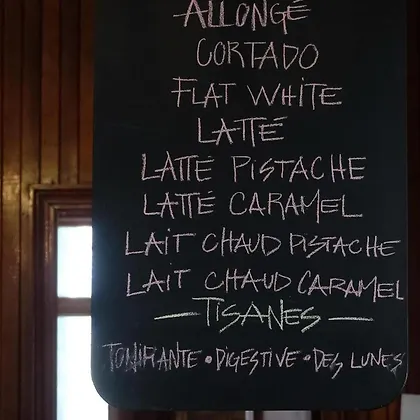 ALLONGÉ
CORTADO
FLAT WHITE
LATTÉ
LATTE PISTACHE
LATTÉ CARAMEL
LAIT CHAUD PISTACHE
LAIT CHAUD CARAMEL
— TISANES —
TONIFIANTE • DIGESTIVE • DES LUNES